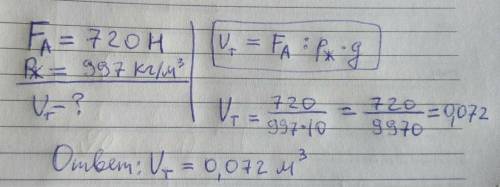 F_A = 720 Н
ρ_ж = 997 кг/м³
V_т - ?
V_т = F_A : ρ_ж · g
V_т = 720/997·10 = 720/9970 = 0,072
Ответ: V_т = 0,072 м³